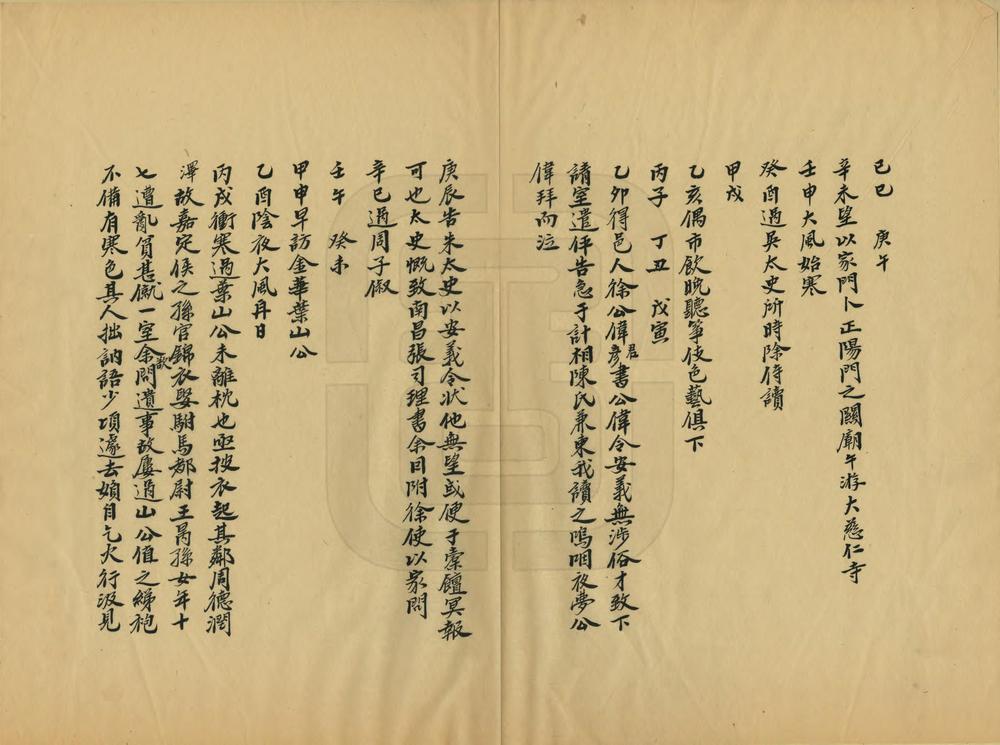 己巳　庚午
辛未望以家門卜正陽門之關廟午游大慈仁寺
壬申大風始寒
癸酉過吳太史所時除侍讀
甲戌
乙亥偶市飲晚聽箏伎色藝俱下
丙子　丁丑　戊寅
乙卯得邑人徐公偉彥君書公偉令安義無涉俗才致下
請室遣伻告急于計相陳氏兼東我讀之鳴咽夜夢公
偉拜而泣
庚辰告朱太史以安義令狀他無望或便于橐饘冥報
可也太史慨致南昌張司理書余目附徐使以家問
辛巳過周子俶
壬午　癸未
甲申早訪金華葉山公
乙酉陰夜大風冉日
丙戌衝寒過葉山公未離枕也亟披衣起其鄰周德潤
澤故嘉定侯之孫官錦衣娶駙馬都尉王昺孫女年十
七遭亂貧甚僦一室余數問遺事故屢過山公值之綈袍
不備有寒色其人拙訥語少頃遽去嬪自乞火行汲見